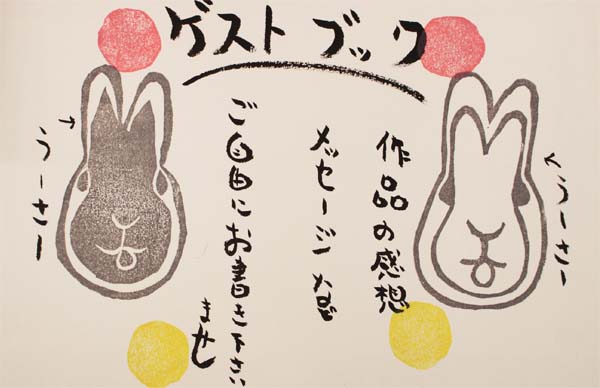 ゲストブック
うーさー
作品の感想
メッセージ
ご自由にお書き下さい
ませ
うーさー